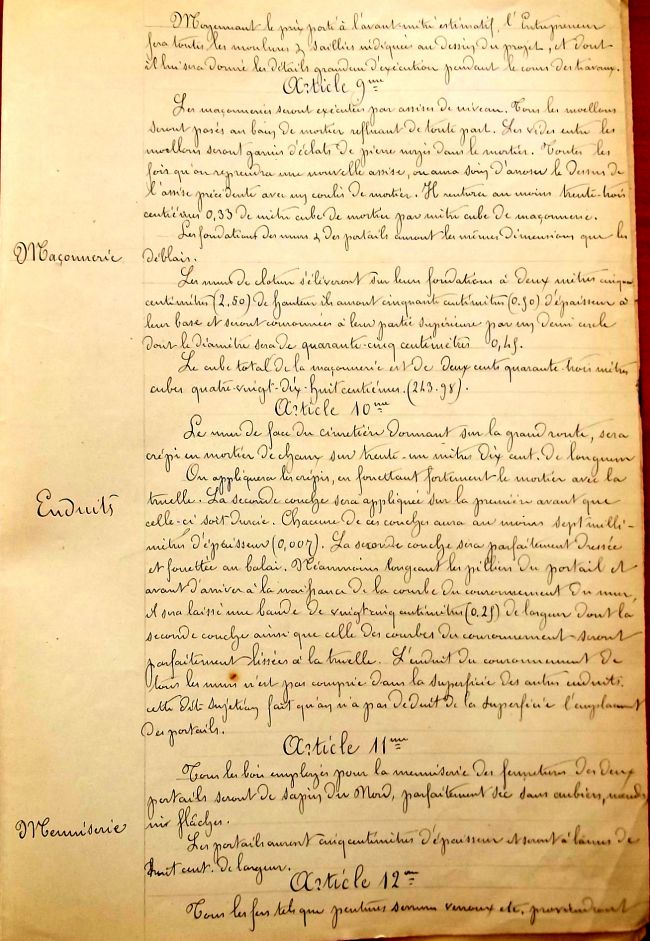 Moyennant le prix porté à l'avant-métré estimatif, l'Entrepreneur
fera toutes les moulures & saillies indiquées au dessin du projet, et dont
il lui sera donné les détails grandeur d'exécution pendant le cours des travaux.
Article 9me
Les maçonneries seront exécutées par assises de niveau. Tous les moellons
seront posés au bain de mortier refluant de toute part. Les vides entre les
moellons seront garnis d'éclats de pierre noyés dans le mortier. Toutes les
fois qu'on reprendra une nouvelle assise, on aura soin d'arroser le dessus de
l'assise précédente avec un coulis de mortier. Il rentrera au moins trente-trois
centièmes 0,33 de mètre cube de mortier par mètre cube de maçonnerie.
Les fondations des murs & des portails auront les mêmes dimensions que les
Maçonnerie
déblais.
Les murs de cloture s'élèveront sur leurs fondations à deux mètres cinquante
centimètres (2,50) de hauteur ils auront cinquante centimètres (0,50) d'épaisseur à
leur base et seront couronnées à leur partie supérieure par un demi cercle
dont le diamètre sera de quarante-cinq centimètres 0,45.
Le cube total de la maçonnerie est de deux cents quarante-trois mètres
cubes quatre-vingt-dix-huit centièmes. (243.98).
Article 10me
Le mur de face du cimetière donnant sur la grand route, sera
crépi en mortier de chaux sur trente-un mètres dix cent. de longueur
On appliquera les crépis, en fouettant fortement le mortier avec la
Enduits
truelle. La seconde couche sera appliquée sur la première avant que
celle-ci soit durcie. Chacune de ces couches aura au moins sept milli-
mètres d'épaisseur (0,007). La seconde couche sera parfaitement dressée
et fouettée au balai. Néanmoins longeant les piliers du portail et
avant d'arriver à la naissance de la courbe du couronnement du mur,
il sera laissé une bande de vingt cinq centimètres (0,25) de largeur dont la
seconde couche ainsi que celle des courbes du couronnement seront
parfaitement lissées à la truelle. L'enduit du couronnement de
tous les murs n'est pas comprise dans la superficie des autres enduits.
cette dite sujétion fait qu'on n'a pas déduit de la superficie l'emplacement
des portails.
Article 11me
Tous les bois employés pour la menuiserie des fermetures des deux
portails seront de sapin du Nord, parfaitement sec sans aubiers, nœuds
Menuiserie
ni flâches.
Les portails auront cinq centimètres d'épaisseur et seront à lames de
huit cent. de largeur.
Article 12me
Tous les fers tels que pentures serrures verroux etc, proviendront